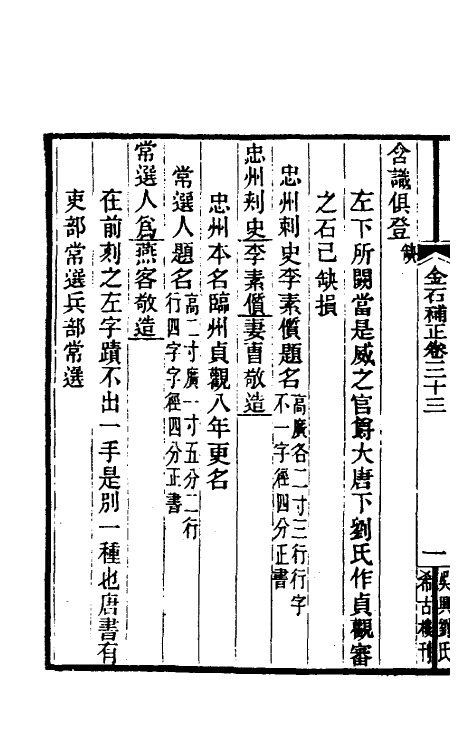 金石補正卷三十三
一
吳興劉氏
希古樓刊
含識俱登缺
左下所闕當是威之官爵大唐下劉氏作貞觀審
之石已缺損
忠州刺史李素儨題名高廣各二寸三行行字
不一字徑四分正書
忠州刺史李素儨妻曹敬造
忠州本名臨州貞觀八年更名
常選人題名高二寸廣一寸五分二行
行四字字徑四分正書
常選人爲燕客敬造
在前刻之左字蹟不出一手是別一種也唐書有
吏部常選兵部常選